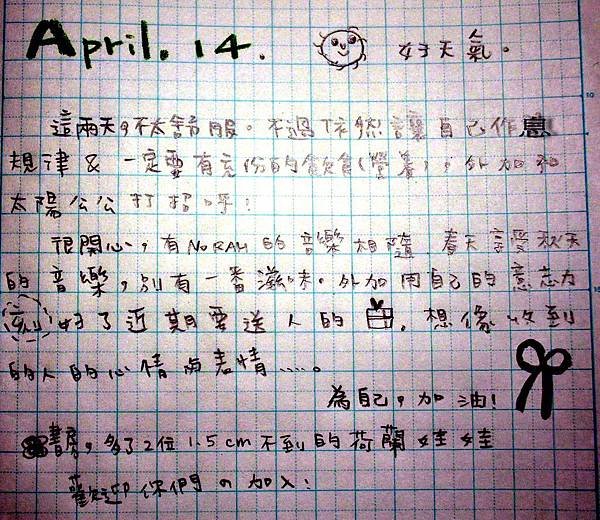 April. 14. 好天氣。
這兩天不太舒服。不過依然讓自己作息
規律 & 一定要有充份的飲食(營養)，外加和
太陽公公打招呼！
很開心，有NORAH的音樂相隨 春天享受秋天
的音樂，別有一番滋味。外加用自己的意志力
刻好了近期要送人的 , 想像收到
的人的心情與表情.....。
為自己，加油！
書房，多了2位1.5cm不到的荷蘭娃娃
歡迎你們の加入！